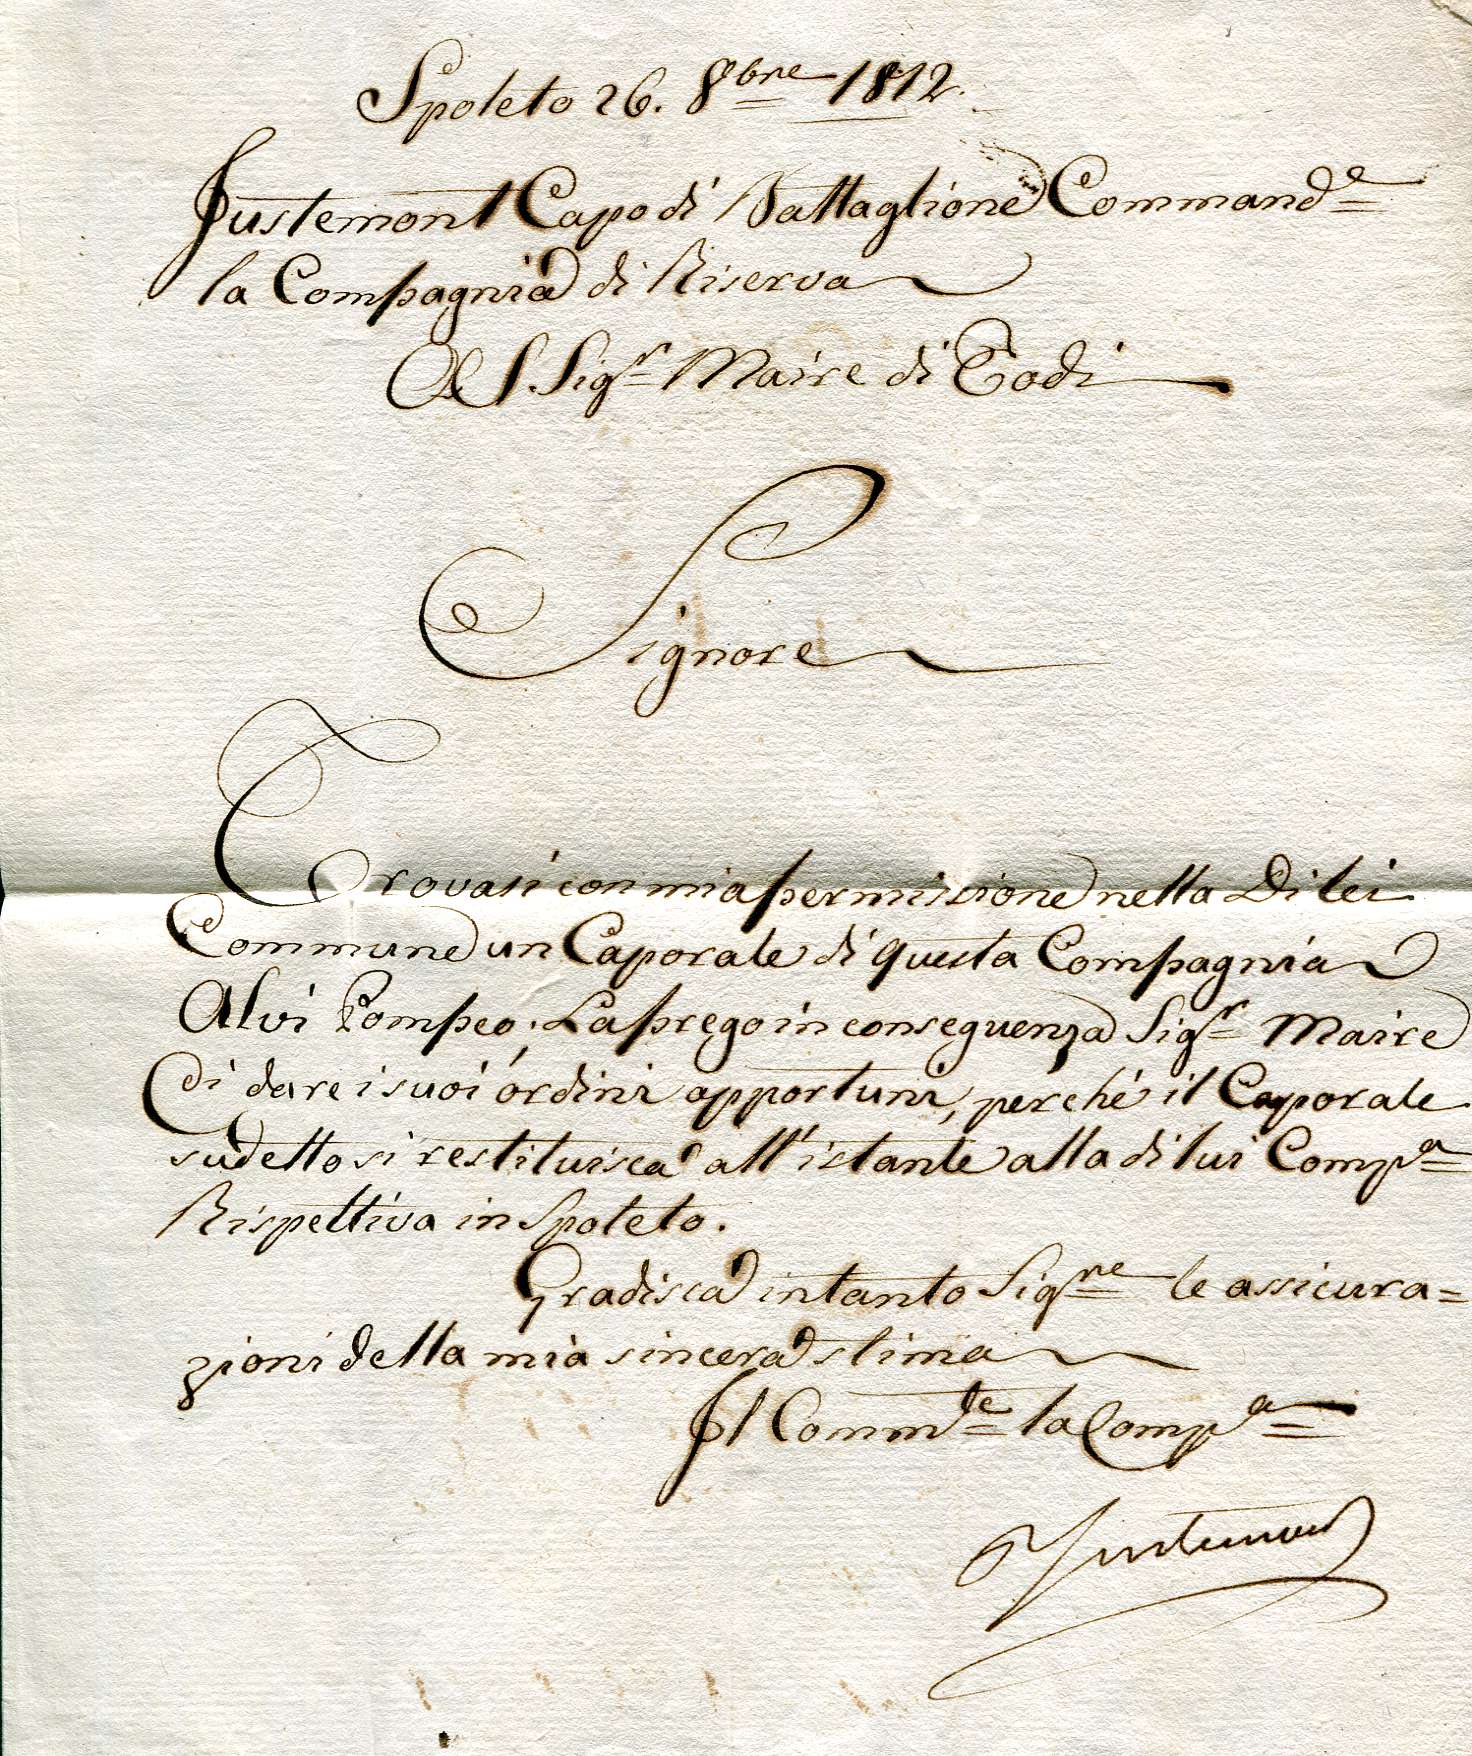 Spoleto 26. 8bre 1812.
Justemont Capo di Battaglione Commande
la Compagnia di Riserva
Al S. Sigr Maire di Todi
Signore
Trovasi con mia permissione nella Di lei
Commune un Caporale di questa Compagnia
Alvi Pompeo; La prego in conseguenza Sigr Maire
Di dare i suoi ordini opportuni, perché il Caporale
sudetto si restituisca all'istante alla di lui Compa
Rispettiva in Spoleto.
Gradisca intanto Sigre le assicura=
zioni della mia sincera stima
Il Commde la Compa
Justemont